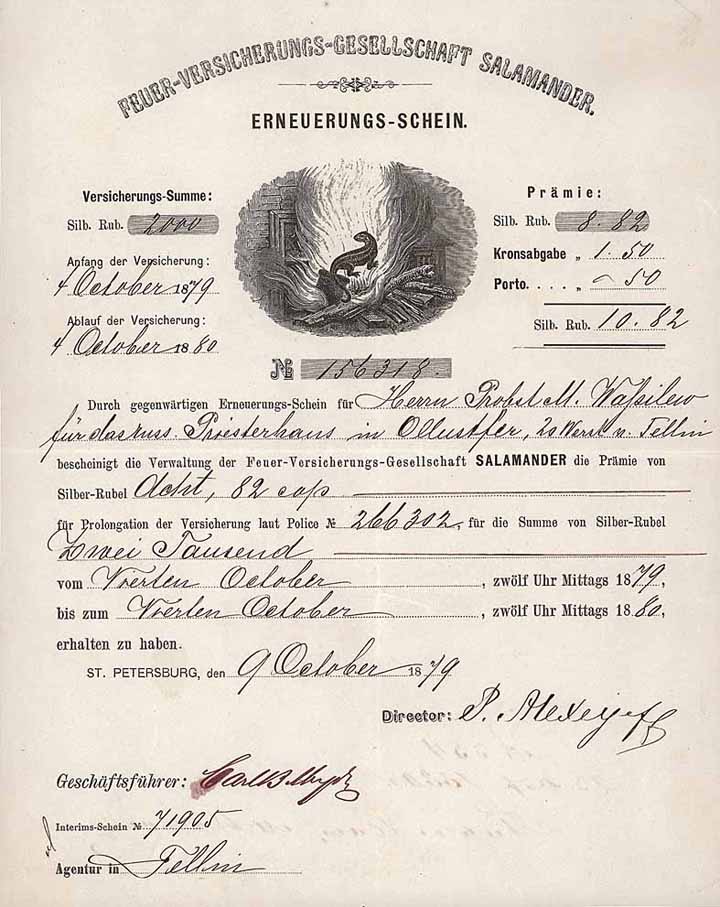 FEUER-VERSICHERUNGS-GESELLSCHAFT SALAMANDER.
ERNEUERUNGS-SCHEIN.
Versicherungs-Summe:
Silb. Rub. 2000
Anfang der Versicherung:
4 October 1879
Ablauf der Versicherung:
4 October 1880
Prämie:
Silb. Rub. 8.82
Kronsabgabe „ 1.50
Porto.... „ 50
Silb. Rub. 10.82
№ 156318.
Durch gegenwärtigen Erneuerungs-Schein für Herrn Probst M. Waßilew
für das russ. Priesterhaus in Ollustfer, 25 Werst v. Fellin
bescheinigt die Verwaltung der Feuer-Versicherungs-Gesellschaft SALAMANDER die Prämie von
Silber-Rubel Acht, 82 cop
für Prolongation der Versicherung laut Police № 266302. für die Summe von Silber-Rubel
Zwei Tausend
vom Vierten October, zwölf Uhr Mittags 1879,
bis zum Vierten October, zwölf Uhr Mittags 1880,
erhalten zu haben.
ST. PETERSBURG, den 9 October 1879
Director: P. Alexejeff
Geschäftsführer:
Interims-Schein № 71905
Agentur in Fellin